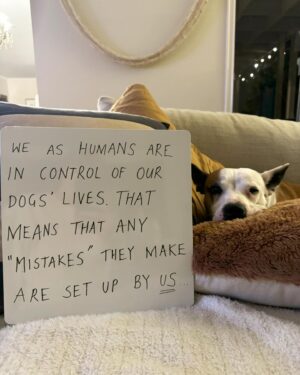 WE AS HUMANS ARE
IN CONTROL OF OUR
DOGS' LIVES. THAT
MEANS THAT ANY
"MISTAKES" THEY MAKE
ARE SET UP BY US...